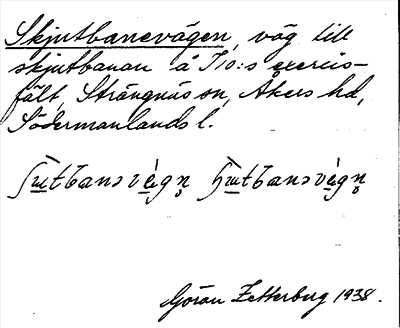 Skjutbanevägen, väg till
skjutbanan å I 10:s exercis-
fält, Strängnäs sn, Åkers hd,
Södermanlands l.
Göran Zetterberg 1938.